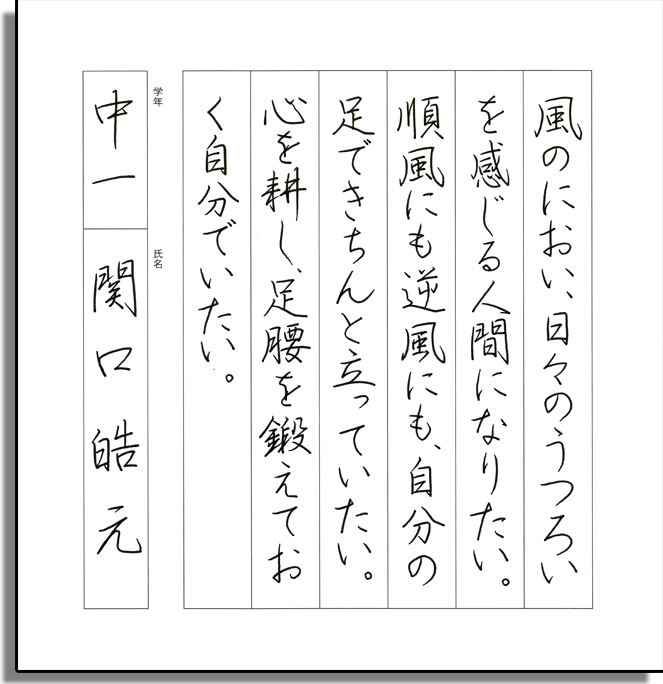 風のにおい、日々のうつろい
を感じる人間になりたい。
順風にも逆風にも、自分の
足できちんと立っていたい。
心を耕し、足腰を鍛えてお
く自分でいたい。
学年
中一
氏名
関口皓元